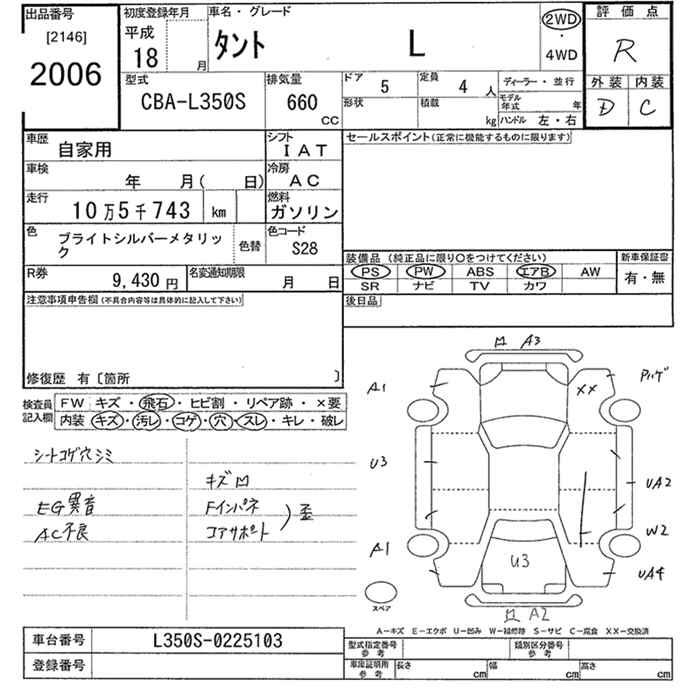 出品番号 初度登録年月 車名・グレード 評価点
[2146] 平成 2WD
2006 18 月 タント L ・ R
4WD
型式 排気量 ドア 5 定員 4 人 ディーラー・並行 外装 内装
CBA-L350S 660 CC 形状 積載 kg モデル年式 年 D C
ハンドル 左・右
車歴 自家用 シフト IAT セールスポイント(正常に機能するものに限ります)
車検 年 月( 日) 冷房 AC
走行 10万5千743 km 燃料 ガソリン
色 ブライトシルバーメタリック 色替 色コード S28
装備品(純正品に限り○をつけてください) 新車保証書
R券 9,430円 名変通知期限 月 日 PS PW ABS エアB AW 有・無
SR ナビ TV カワ
注意事項申告欄(不具合内容等は具体的に記入して下さい) 後日品
修復歴 有〔箇所 〕
検査員記入欄 FW キズ・飛石・ヒビ割・リペア跡・×要
内装 キズ・汚レ・コゲ・穴・スレ・キレ・破レ
シートコゲ穴シミ
キズ凹
EG異音 Fインパネ
AC不良 コアサポート ) 歪
凹 A3
A1 XX Pハゲ
U3 UA2
A1 W2
U3 UA4
スペア 凹 A2
A−キズ E−エクボ U−凹み W−補修跡 S−サビ C−腐食 XX−交換済
車台番号 L350S-0225103 型式指定番号 参考 類別区分番号 参考
登録番号 車庫証明用 参考 長さ cm 幅 cm 高さ cm